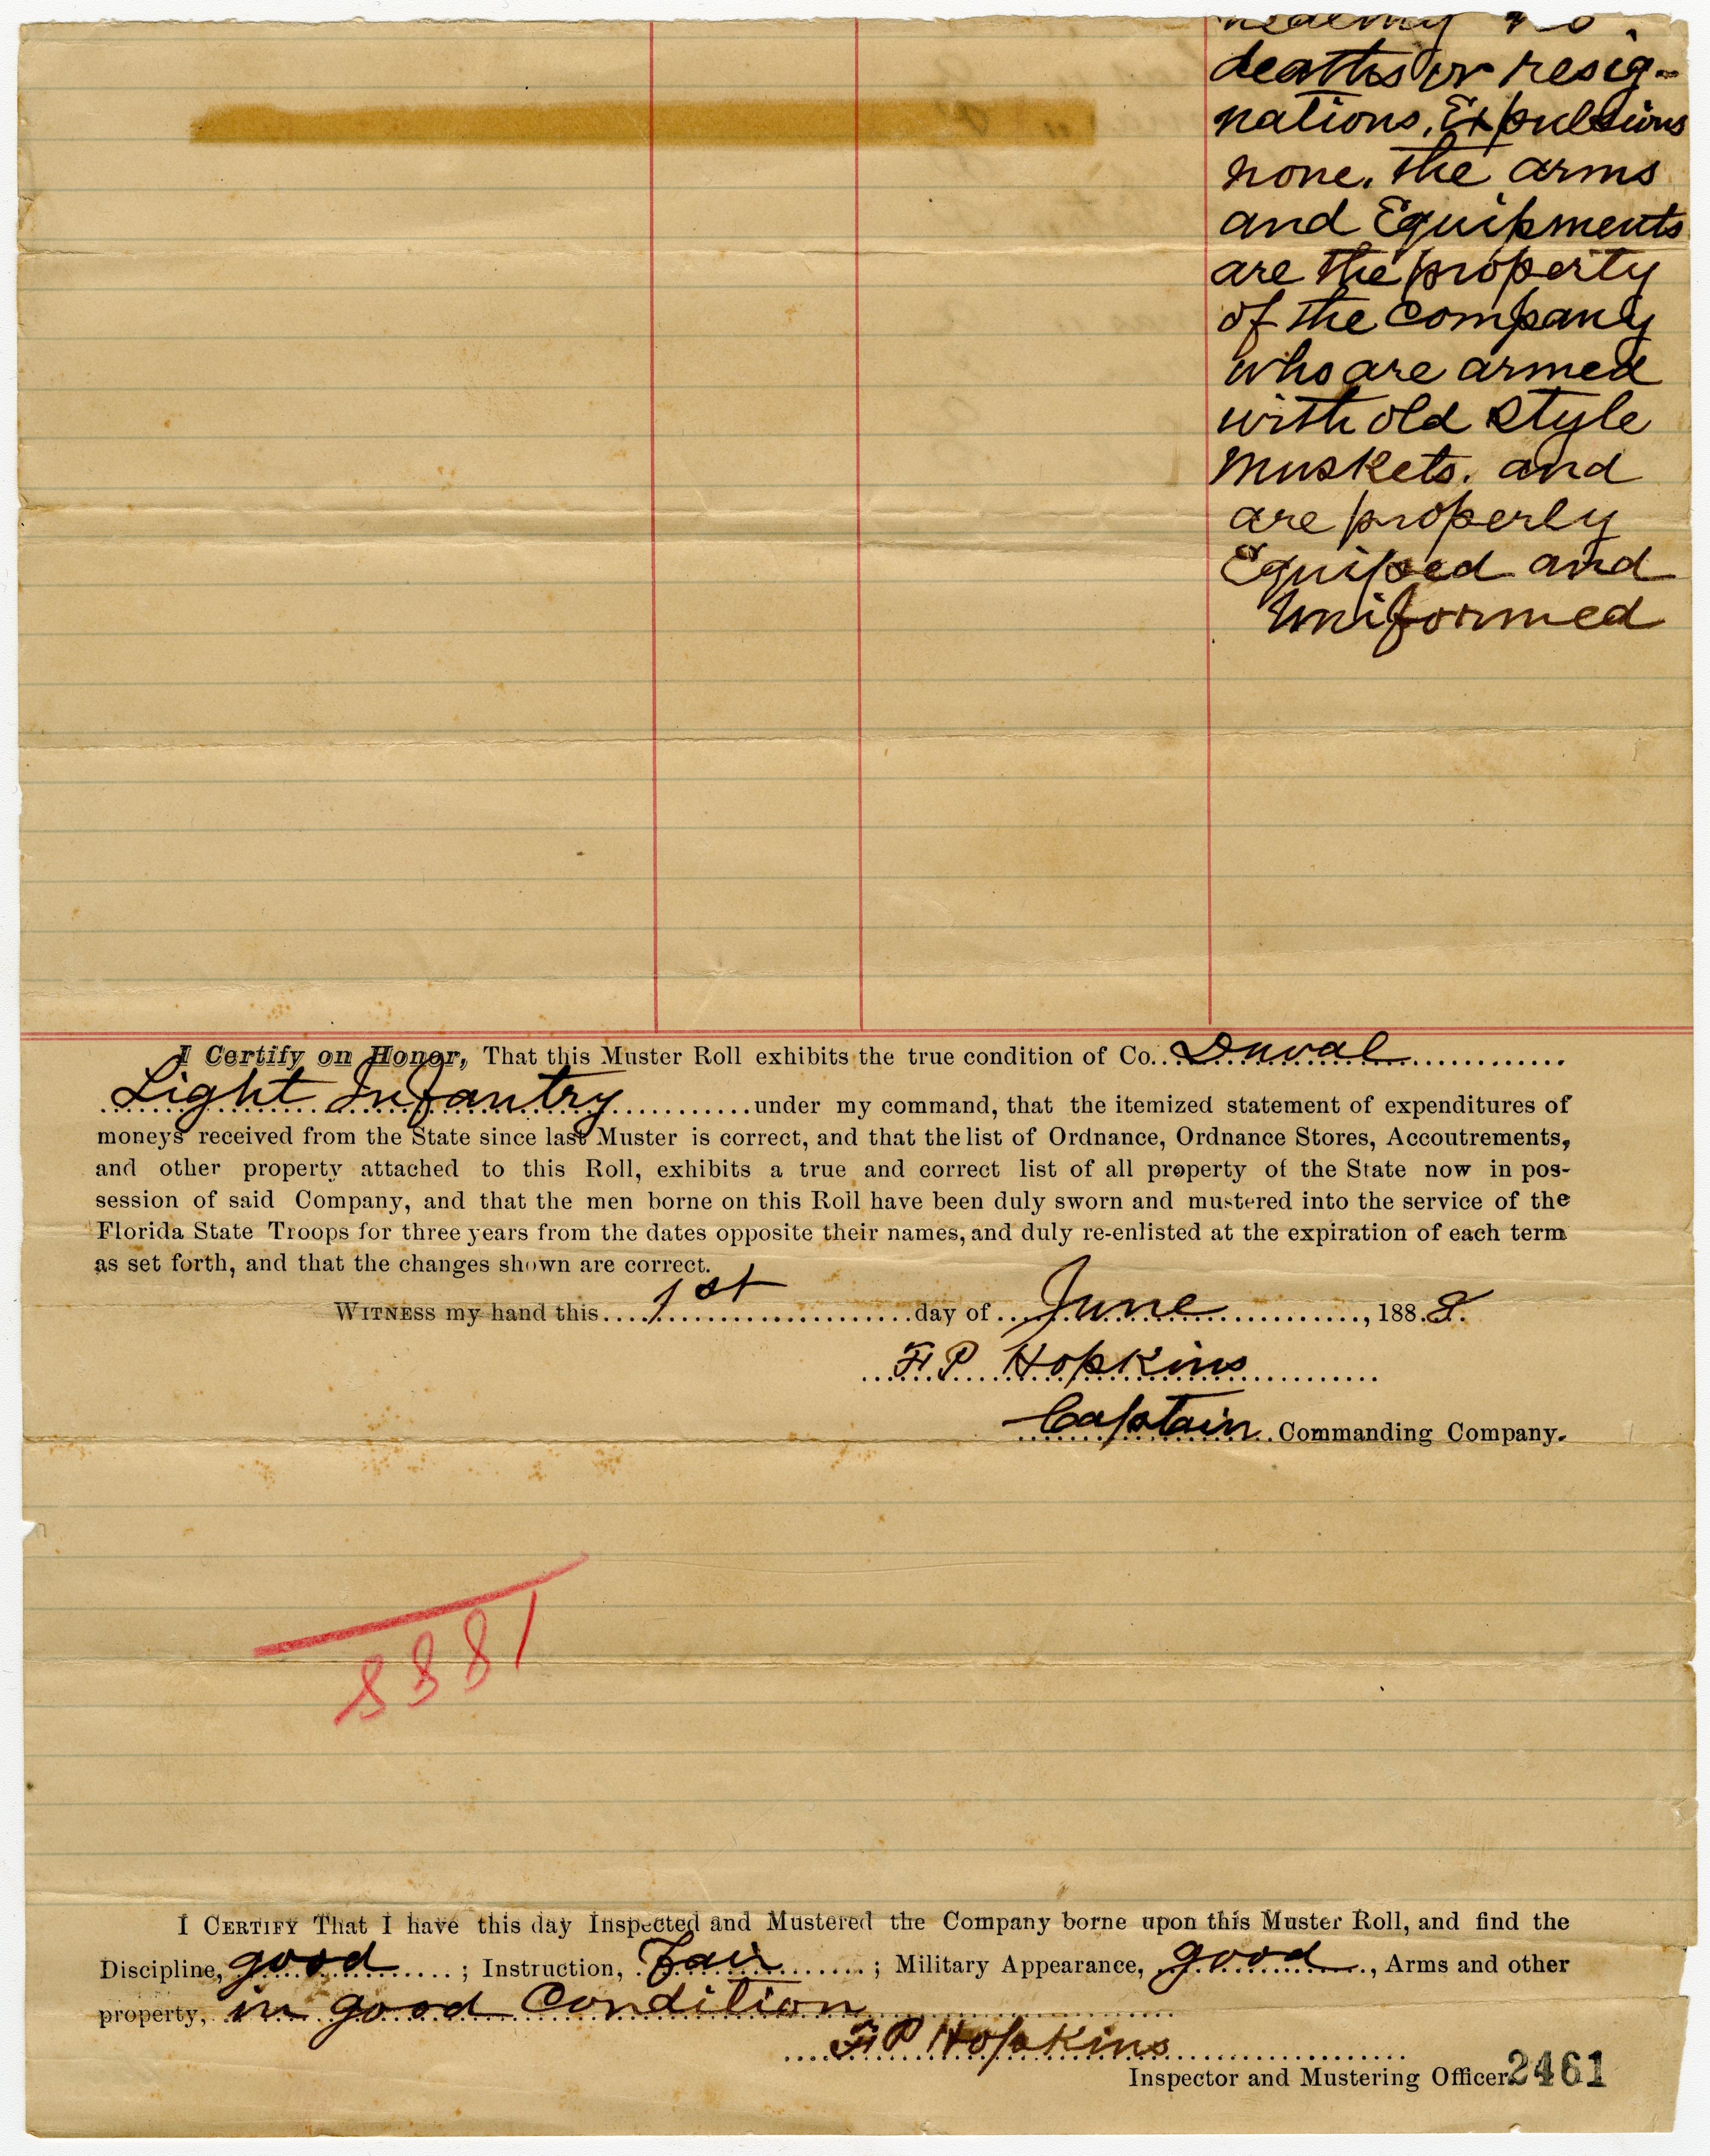 healthy no
deaths or resig-
nations, Expulsions
none. the arms
and Equipments
are the property
of the Company
who are armed
with old style
muskets. and
are properly
Equiped and
Uniformed
I Certify on Honor, That this Muster Roll exhibits the true condition of Co. Duval
Light Infantry under my command, that the itemized statement of expenditures of
moneys received from the State since last Muster is correct, and that the list of Ordnance, Ordnance Stores, Accoutrements,
and other property attached to this Roll, exhibits a true and correct list of all property of the State now in pos-
session of said Company, and that the men borne on this Roll have been duly sworn and mustered into the service of the
Florida State Troops for three years from the dates opposite their names, and duly re-enlisted at the expiration of each term
as set forth, and that the changes shown are correct.
WITNESS my hand this 1st day of June, 1888.
F P Hopkins
Captain Commanding Company.
1888
I CERTIFY That I have this day Inspected and Mustered the Company borne upon this Muster Roll, and find the
Discipline, good; Instruction, Fair; Military Appearance, good, Arms and other
property, in good Condition
F P Hopkins
Inspector and Mustering Officer. 2461